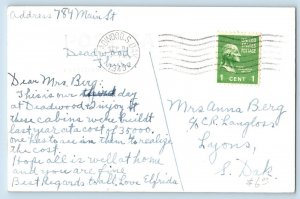 address 789 Main St
Deadwood
Thurs
Dear Mrs. Berg:
This is our third day
at Deadwood & enjoy it
these cabins were built
last year at a cost of 35000.
one has to see them to realize
the cost.
Hope all is well at home
and you are fine.
Best Regards to all, Love Elfrieda
UNITED STATES POSTAGE
1 CENT 1
Mrs Anna Berg
c/o C.R. Langloss
Lyons,
S. Dak.